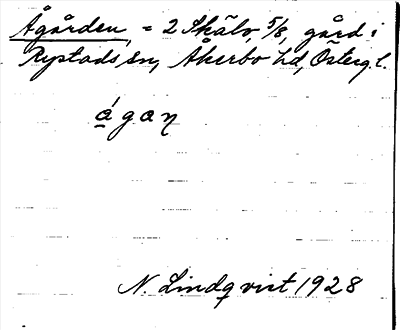 Ågården = 2 Skälv, 5/8, gård i
Rystads sn, Åkerbo hd, Österg. l.
ágaη
N. Lindqvist 1928